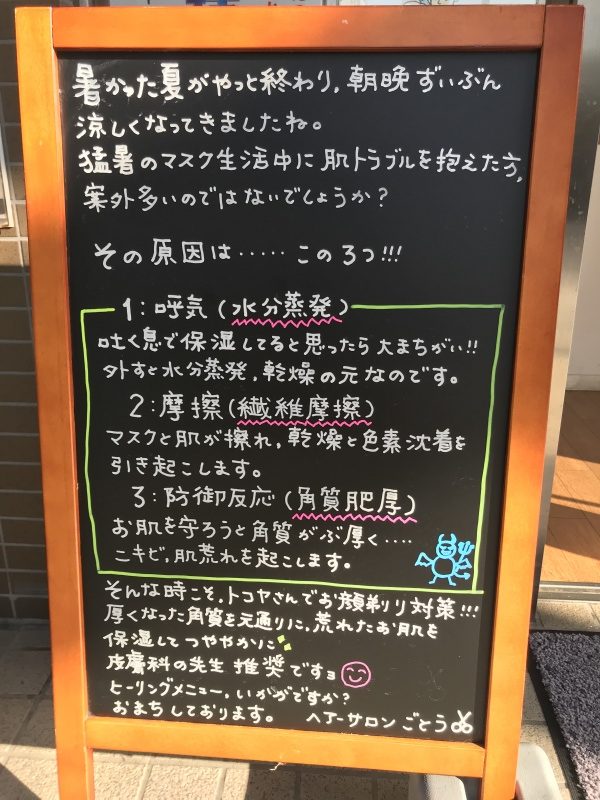 暑かった夏がやっと終わり,朝晩ずいぶん
涼しくなってきましたね。
猛暑のマスク生活中に肌トラブルを抱えた方,
案外多いのではないでしょうか?
その原因は……この3つ!!!
1:呼気(水分蒸発)
吐く息で保湿してると思ったら大まちがい!!
外すと水分蒸発,乾燥の元なのです。
2:摩擦(繊維摩擦)
マスクと肌が擦れ,乾燥と色素沈着を
引き起こします。
3:防御反応(角質肥厚)
お肌を守ろうと角質がぶ厚く‥‥
ニキビ,肌荒れを起こします。
そんな時こそ,トコヤさんでお顔剃り対策!!!
厚くなった角質を元通りに,荒れたお肌を
保湿してつややかに
皮膚科の先生推奨ですョ
ヒーリングメニュー,いかがですか?
おまちしております。 ヘアーサロンごとう